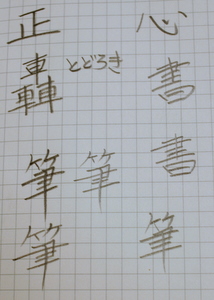 正 心
轟 とどろき 書
筆 筆 書
筆 筆